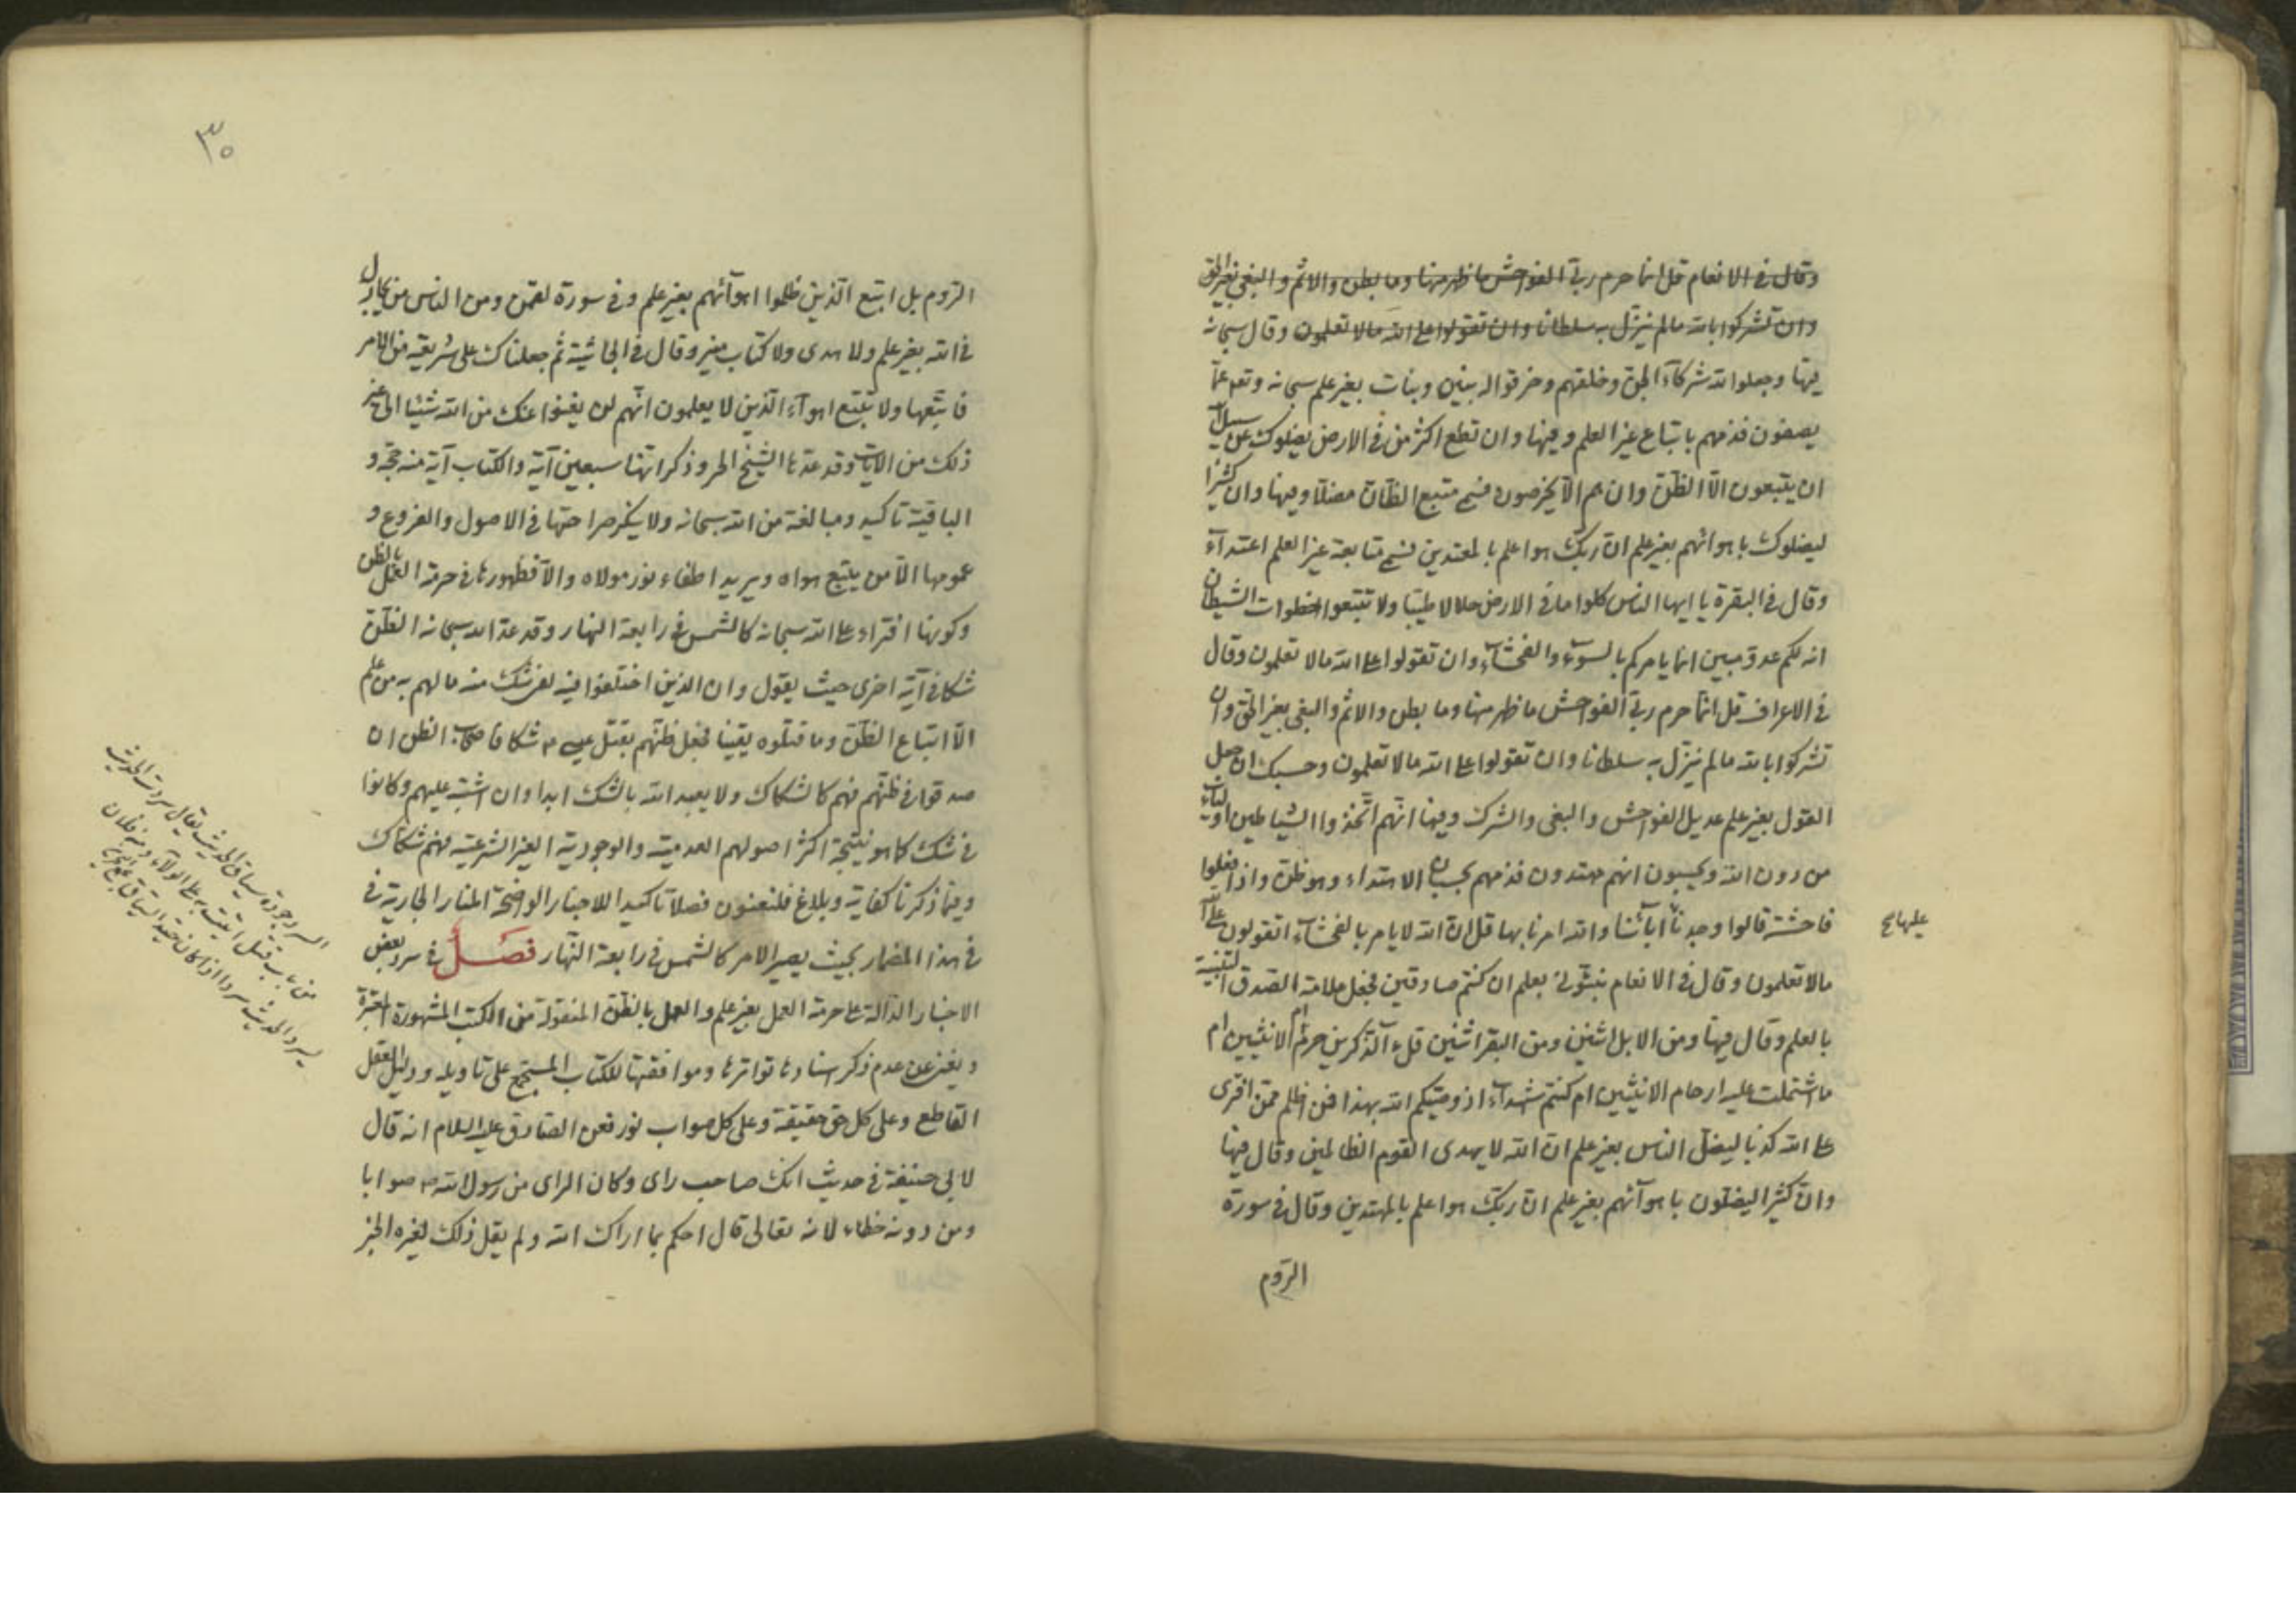 وقال في الانعام قل انما حرم ربي الفواحش ما ظهر منها وما بطن والاثم والبغي بغير الحق
وان تشركوا بالله مالم ينزل به سلطانا وان تقولوا على الله مالا تعلمون وقال سبحانه
فيها وجعلوا لله شركآء الجن وخلقهم وخرقوا له بنين وبنات بغير علم سبحانه وتعه عما
يصفون فذمهم باتباع غير العلم وفيها وان تطع اكثر من في الارض يضلوك عن سبيل الله
ان يتبعون الا الظن وان هم الا يخرصون فسمى متبع الظان مضلا وفيها وان كثيرا
ليضلوك باهوائهم بغير علم ان ربك هو اعلم بالمعتدين فسمى متابعة غير العلم اعتدآء
وقال في البقرة يا ايها الناس كلوا مما في الارض حلالا طيبا ولا تتبعوا خطوات الشيطان
انه لكم عدو مبين انما يامركم بالسوء والفحشآء وان تقولوا على الله مالا تعلمون وقال
في الاعراف قل انما حرم ربي الفواحش ما ظهر منها وما بطن والاثم والبغي بغير الحق وان
تشركوا بالله مالم ينزل به سلطانا وان تقولوا على الله مالا تعلمون وحسبك ان جعل
القول بغير علم عديل الفواحش والبغي والشرك وفيها انهم اتخذوا الشياطين اوليآء
من دون الله ويحسبون انهم مهتدون فذمهم بحسبان الاهتداء وهو ظن واذا فعلوا
فاحشة قالوا وجدنا اباءنا والله امرنا بها قل ان الله لا يامر بالفحشآء اتقولون على الله
عليها صح
مالا تعلمون وقال في الانعام نبئوني بعلم ان كنتم صادقين فجعل علامة الصدق التنبئة
بالعلم وقال فيها ومن الابل اثنين ومن البقر اثنين قل ءآلذكرين حرم ام الانثيين ام
ما اشتملت عليه ارحام الانثيين ام كنتم شهدآء اذ وصيكم الله بهذا فمن اظلم ممن افترى
على الله كذبا ليضل الناس بغير علم ان الله لا يهدى القوم الظالمين وقال فيها
وان كثيرا ليضلون باهوآئهم بغير علم ان ربك هو اعلم بالمهتدين وقال في سورة
الروم
٣٠
الروم بل اتبع الذين ظلموا اهوآئهم بغير علم وفي سورة لقمن ومن الناس من يجادل
في الله بغير علم ولا هدى ولا كتاب منير وقال في الجاثية ثم جعلناك على شريعة من الامر
فاتبعها ولا تتبع اهوآء الذين لا يعلمون انهم لن يغنوا عنك من الله شيئا الى غير
ذلك من الايات وقد عدها الشيخ الحر وذكر انها سبعين آية والكتاب آية منه حجة و
الباقية تاكيد ومبالغة من الله سبحانه ولا ينكر صراحتها في الاصول والفروع و
عمومها الا من يتبع هواه ويريد اطفاء نور مولاه والا فظهورها في حرمة العمل بالظن
وكونها افتراء على الله سبحانه كالشمس في رابعة النهار وقد عد الله سبحانه الظن
شكا في آية اخرى حيث يقول وان الذين اختلفوا فيه لفي شك منه مالهم به من علم
الا اتباع الظن وما قتلوه يقينا فجعل ظنهم بقتل عيسى شكا فاصحاب الظن ان
صدقوا في ظنهم فهم كالشكاك ولا يعبد الله بالشك ابدا وان اشتبه عليهم وكانوا
في شك كما هو نتيجة اكثر اصولهم العدمية والوجودية الغير الشرعية فهم شكاك
وفيما ذكرنا كفاية وبلاغ فلنعنون فصلا تاكيدا للاخبار الواضحة المنار الجارية في
في هذا المضمار بحيث يصير الامر كالشمس في رابعة النهار فصل في سرد بعض
الاخبار الدالة على حرمة العمل بغير علم والعمل بالظن المنقولة من الكتب المشهورة المعتبرة
ويغني عن عدم ذكر اسنادها تواترها وموافقتها للكتاب المستجمع على تاويله ودليل العقل
القاطع وعلى كل حق حقيقة وعلى كل صواب نور فعن الصادق عليه السلام انه قال
لابي حنيفة في حديث انك صاحب راى وكان الراى من رسول الله ص صوابا
ومن دونه خطاء لانه تعالى قال احكم بما اراك الله ولم يقل ذلك لغيره الخبر
السرد جودة سياق الحديث تقال سردت الحديث
من باب قتل اتيت به على الولآء ومنه فلان
يسرد الحديث سردا اذا كان جيد السياق مجمع البحرين